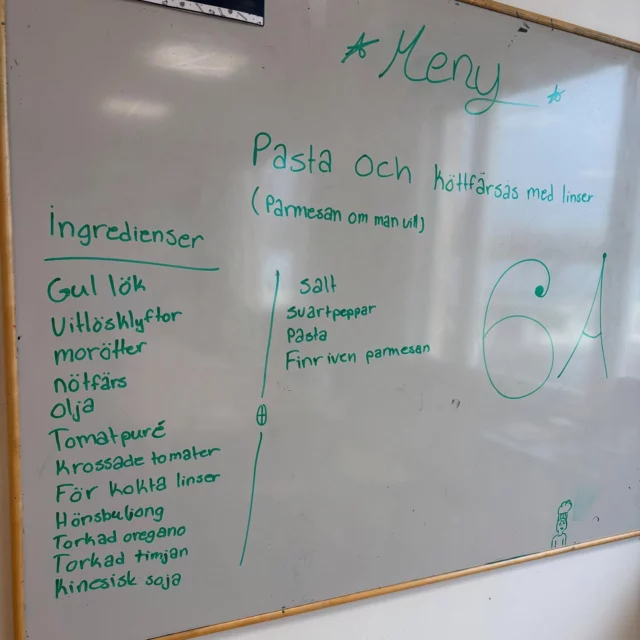 Meny
Pasta och köttfärsås med linser
(Parmesan om man vill)
Ingredienser
Gul lök
Vitlösklyftor
morötter
nötfärs
olja
Tomatpuré
Krossade tomater
För kokta linser
Hönsbuljong
Torkad oregano
Torkad timjan
Kinesisk soja
Salt
Svartpeppar
Pasta
Finriven parmesan
6A